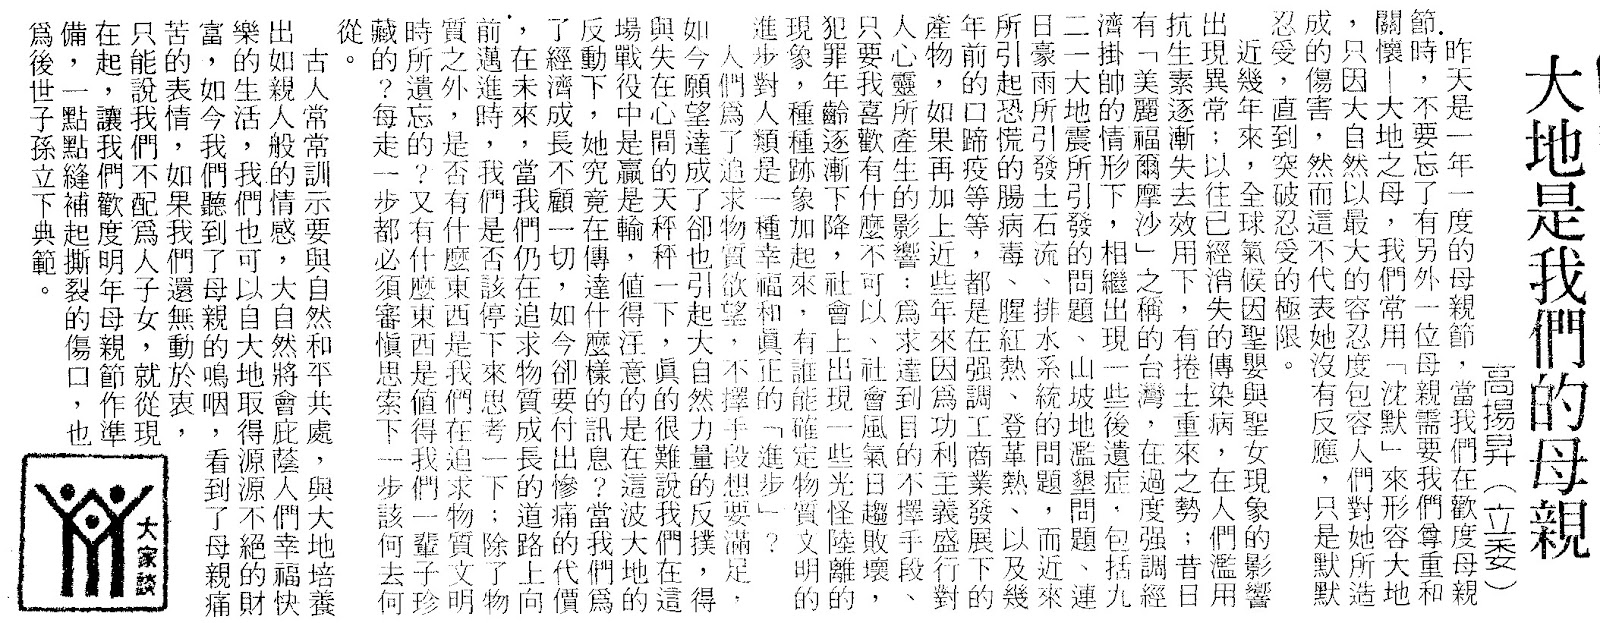 大地是我們的母親
高揚昇（立委）
昨天是一年一度的母親節，當我們在歡度母親
節時，不要忘了有另外一位母親需要我們尊重和
關懷—大地之母，我們常用「沈默」來形容大地
，只因大自然以最大的容忍度包容人們對她所造
成的傷害，然而這不代表她沒有反應，只是默默
忍受，直到突破忍受的極限。
近幾年來，全球氣候因聖嬰與聖女現象的影響
出現異常；以往已經消失的傳染病，在人們濫用
抗生素逐漸失去效用下，有捲土重來之勢；昔日
有「美麗福爾摩沙」之稱的台灣，在過度强調經
濟掛帥的情形下，相繼出現一些後遺症，包括九
二一大地震所引發的問題、山坡地濫墾問題、連
日豪雨所引發土石流、排水系統的問題，而近來
所引起恐慌的腸病毒、腥紅熱、登革熱、以及幾
年前的口蹄疫等等，都是在强調工商業發展下的
產物，如果再加上近些年來因爲功利主義盛行對
人心靈所產生的影響：爲求達到目的不擇手段、
只要我喜歡有什麼不可以、社會風氣日趨敗壞，
犯罪年齡逐漸下降，社會上出現一些光怪陸離的
現象，種種跡象加起來，有誰能確定物質文明的
進步對人類是一種幸福和眞正的「進步」？
人們爲了追求物質欲望，不擇手段想要滿足，
如今願望達成了卻也引起大自然力量的反撲，得
與失在心間的天秤秤一下，眞的很難說我們在這
場戰役中是贏是輸，值得注意的是在這波大地的
反動下，她究竟在傳達什麼樣的訊息？當我們爲
了經濟成長不顧一切，如今卻要付出慘痛的代價
，在未來，當我們仍在追求物質成長的道路上向
前邁進時，我們是否該停下來思考一下；除了物
質之外，是否有什麼東西是我們在追求物質文明
時所遺忘的？又有什麼東西是值得我們一輩子珍
藏的？每走一步都必須審愼思索下一步該何去何
從。
古人常常訓示要與自然和平共處，與大地培養
出如親人般的情感，大自然將會庇蔭人們幸福快
樂的生活，我們也可以自大地取得源源不絕的財
富，如今我們聽到了母親的鳴咽，看到了母親痛
苦的表情，如果我們還無動於衷，
只能說我們不配爲人子女，就從現
在起，讓我們歡度明年母親節作準
備，一點點縫補起撕裂的傷口，也
爲後世子孫立下典範。
大家談